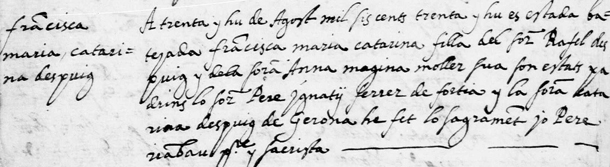 francisca
maria, catari-
na despuig
A trenta y hu de Agost mil sis cents trenta y hu es estada ba-
tejada francisca maria catarina filla del sor. Rafel des
puig y dela sora. Anna magina moller sua son estats pa
drins lo sor. Pere Ignatij ferrer de fortia y la sora. cata
rina despuig de Gerona he fet lo sagrament. jo Pere
riabau pre. y sacrista